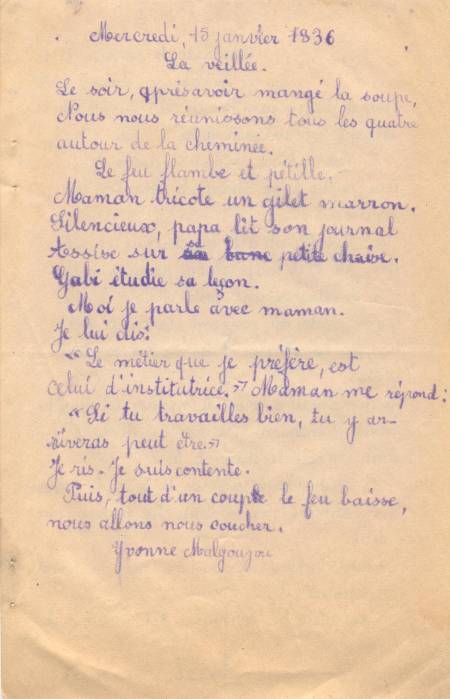 Mercredi, 15 janvier 1936
La veillée.
Le soir, après avoir mangé la soupe,
Nous nous réunissons tous les quatre
autour de la cheminée.
Le feu flambe et pétille.
Maman tricote un gilet marron.
Silencieux, papa lit son journal
Assise sur sa banc petite chaise.
Gabi étudie sa leçon.
Moi je parle avec maman.
Je lui dis:
"Le métier que je préfère, est
celui d'institutrice." Maman me répond:
"Si tu travailles bien, tu y ar-
riveras peut être."
Je ris. Je suis contente.
Puis, tout d'un coup le feu baisse,
nous allons nous coucher.
Yvonne Malgouzou